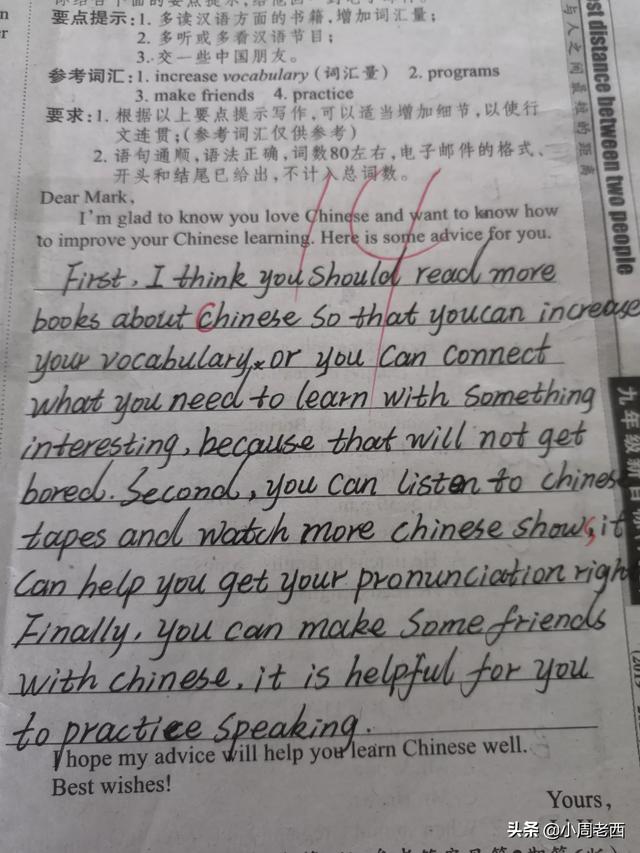 要点提示:1. 多读汉语方面的书籍,增加词汇量;
2. 多听或多看汉语节目;
3. 交一些中国朋友。
参考词汇:1. increase vocabulary (词汇量) 2. programs
3. make friends 4. practice
要求:1. 根据以上要点提示写作,可以适当增加细节,以使行
文连贯;(参考词汇仅供参考)
2. 语句通顺,语法正确,词数80左右,电子邮件的格式、
开头和结尾已给出,不计入总词数。
Dear Mark,
I'm glad to know you love Chinese and want to know how
to improve your Chinese learning. Here is some advice for you.
First, I think you should read more
books about Chinese so that you can increase
your vocabulary, or you can connect
what you need to learn with something
interesting, because that will not get
bored. Second, you can listen to chinese
tapes and watch more chinese shows, it
can help you get your pronunciation righ
Finally, you can make some friends
with chinese, it is helpful for you
to practice speaking.
I hope my advice will help you learn Chinese well.
Best wishes!
Yours,
14
st distance between two people
与人之间最短的距离
九年级
头条 @小周老西